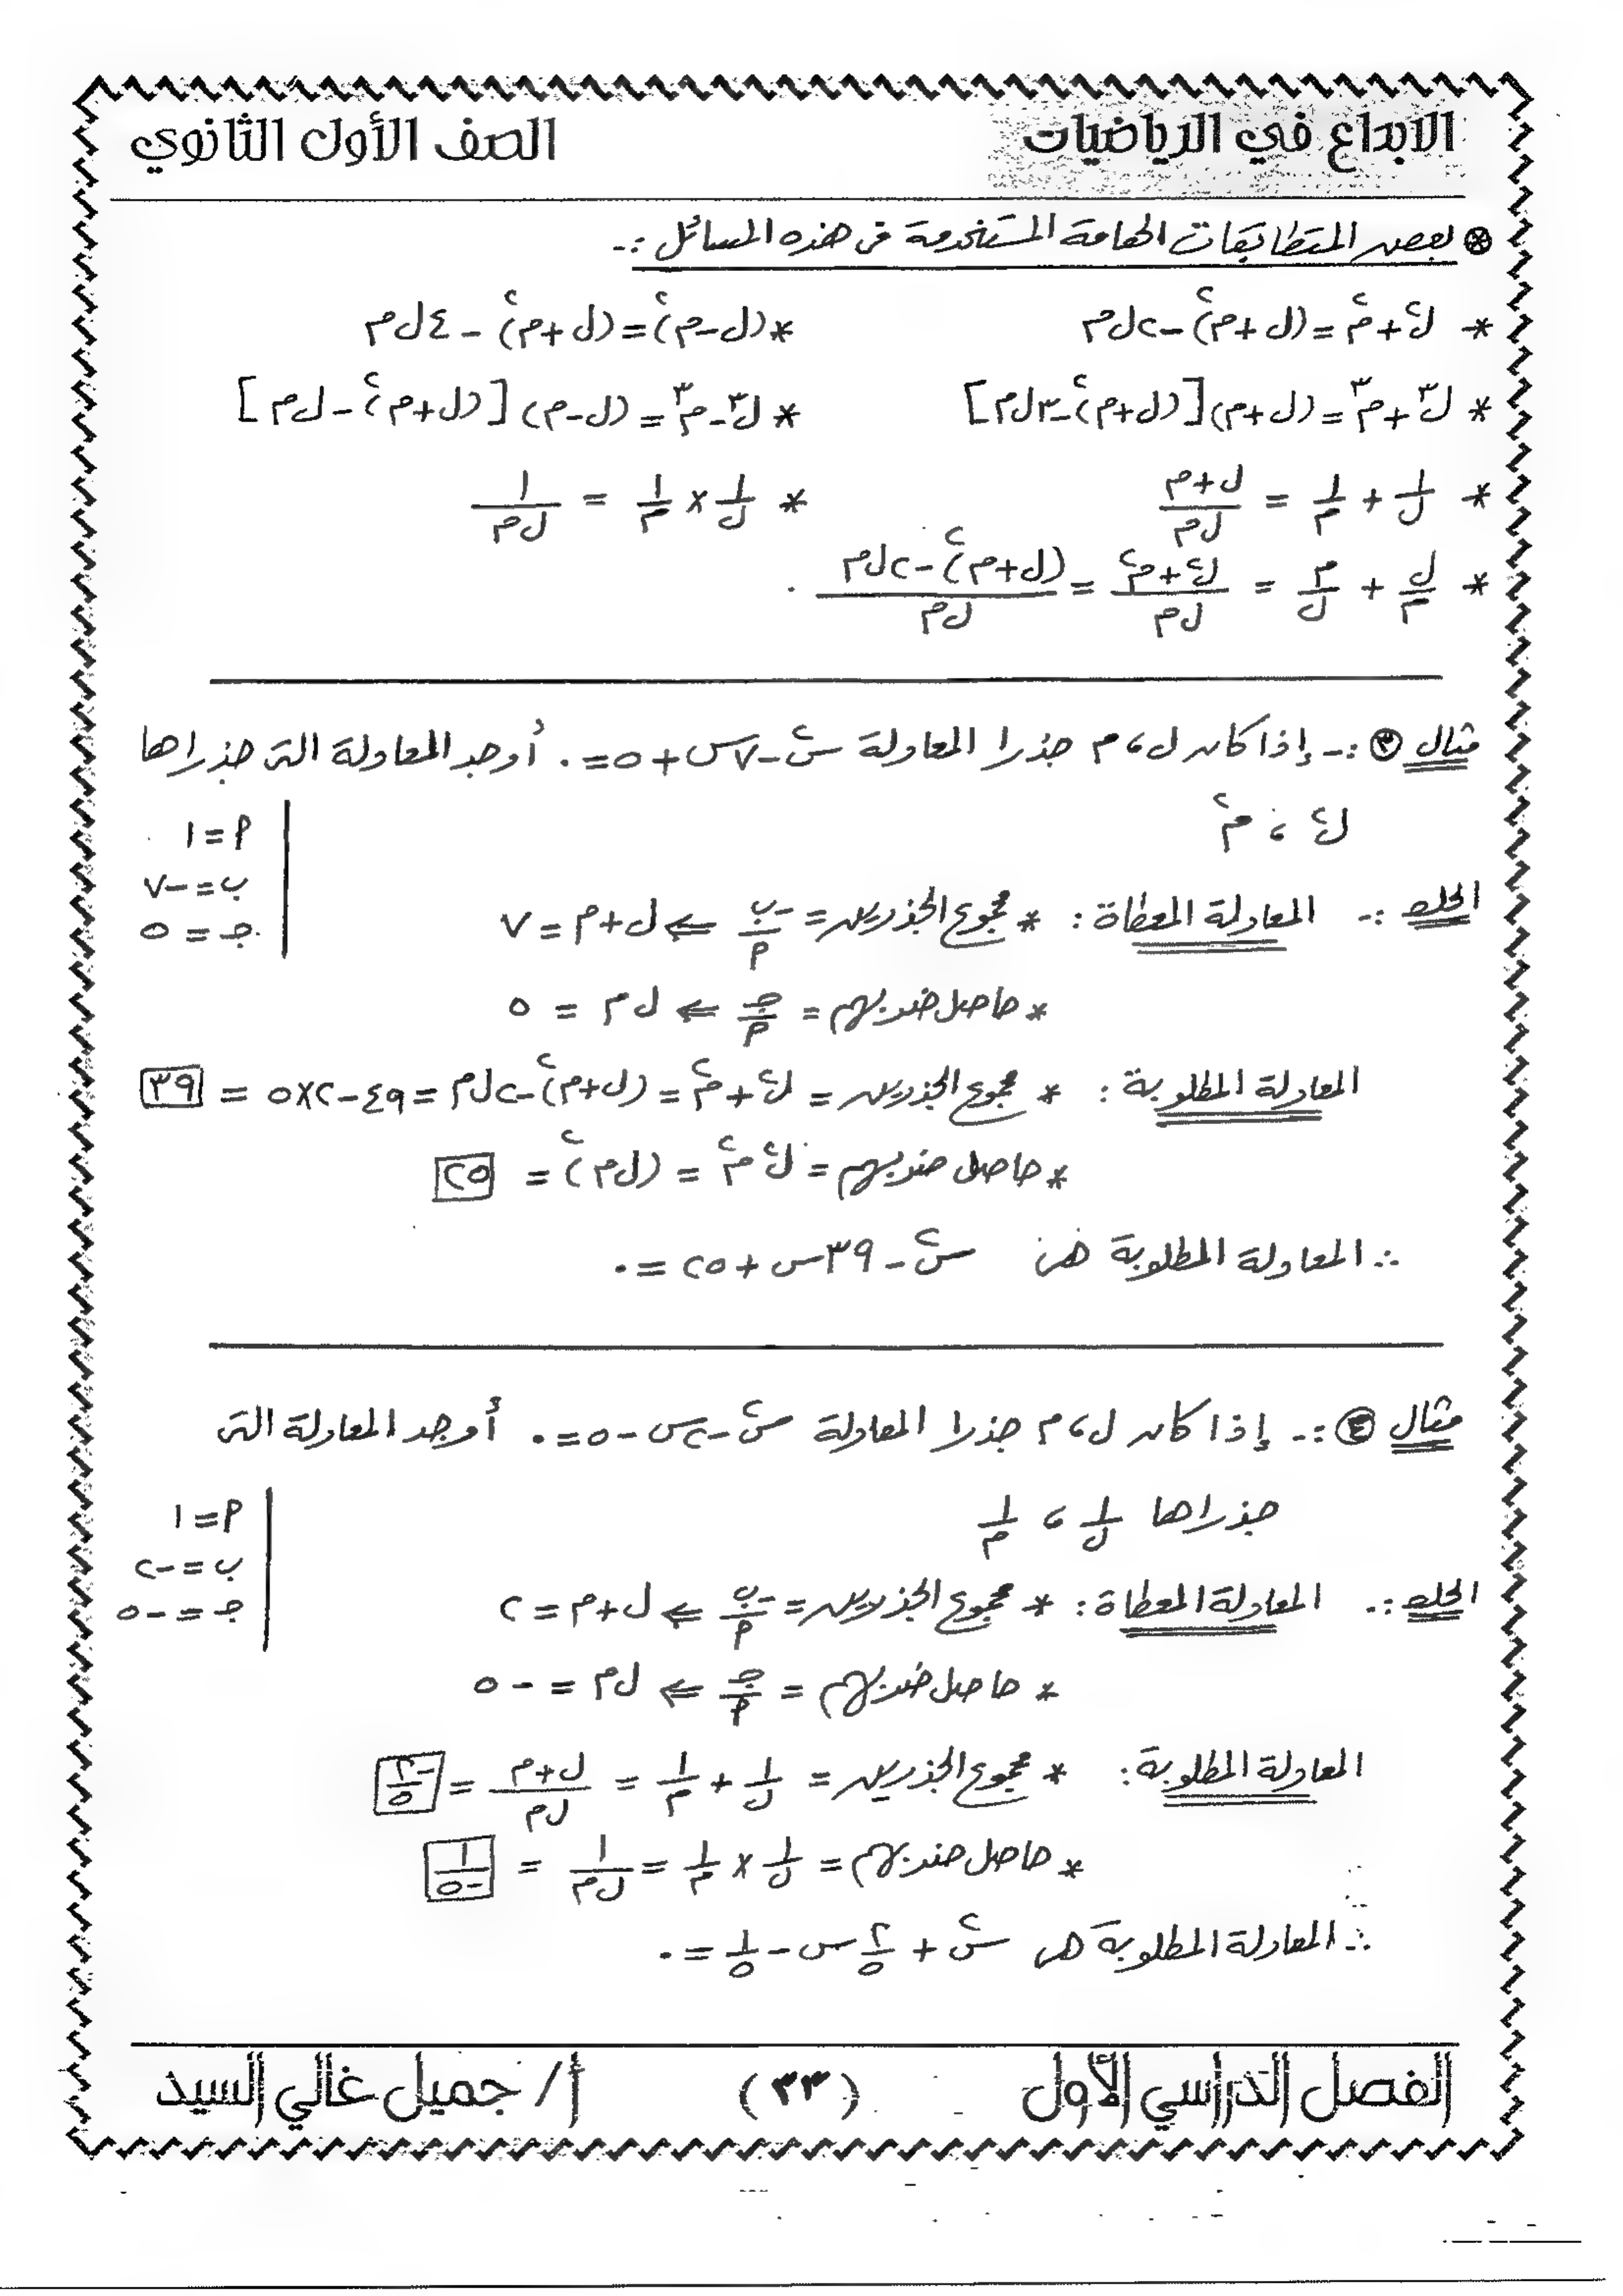 الابداع في الرياضيات الصف الأول الثانوي
⊛ بعض المتطابقات الهامة المستخدمة فى هذه المسائل :-
* ل٢ + م٢ = (ل + م)٢ - ٢ ل م * (ل - م)٢ = (ل + م)٢ - ٤ ل م
* ل٣ + م٣ = (ل + م) [(ل + م)٢ - ٣ ل م] * ل٣ - م٣ = (ل - م) [(ل + م)٢ - ل م]
* ١/ل + ١/م = (ل + م)/(ل م) * ١/ل × ١/م = ١/(ل م)
* ل/م + م/ل = (ل٢ + م٢)/(ل م) = ((ل + م)٢ - ٢ ل م)/(ل م) .
مثال ٣ :- إذا كان ل ، م جذرا المعادلة س٢ - ٧س + ٥ = ٠ أوجد المعادلة التى جذراها
ل٢ ، م٢
أ = ١
ب = -٧
جـ = ٥
الحل :- المعادلة المعطاة : * مجموع الجذرين = -ب/أ ⇐ ل + م = ٧
* حاصل ضربهم = جـ/أ ⇐ ل م = ٥
المعادلة المطلوبة : * مجموع الجذرين = ل٢ + م٢ = (ل + م)٢ - ٢ ل م = ٤٩ - ٢ × ٥ = ٣٩
* حاصل ضربهم = ل٢ م٢ = (ل م)٢ = ٢٥
∴ المعادلة المطلوبة هى س٢ - ٣٩س + ٢٥ = ٠
مثال ٤ :- إذا كان ل ، م جذرا المعادلة س٢ - ٢س - ٥ = ٠ أوجد المعادلة التى
جذراها ١/ل ، ١/م
أ = ١
ب = -٢
جـ = -٥
الحل :- المعادلة المعطاة : * مجموع الجذرين = -ب/أ ⇐ ل + م = ٢
* حاصل ضربهم = جـ/أ ⇐ ل م = -٥
المعادلة المطلوبة : * مجموع الجذرين = ١/ل + ١/م = (ل + م)/(ل م) = -٢/٥
* حاصل ضربهم = ١/ل × ١/م = ١/(ل م) = ١/-٥
∴ المعادلة المطلوبة هى س٢ + ٢/٥ س - ١/٥ = ٠
الفصل الدراسي الأول (٣٣) أ/ جميل غالي السيد